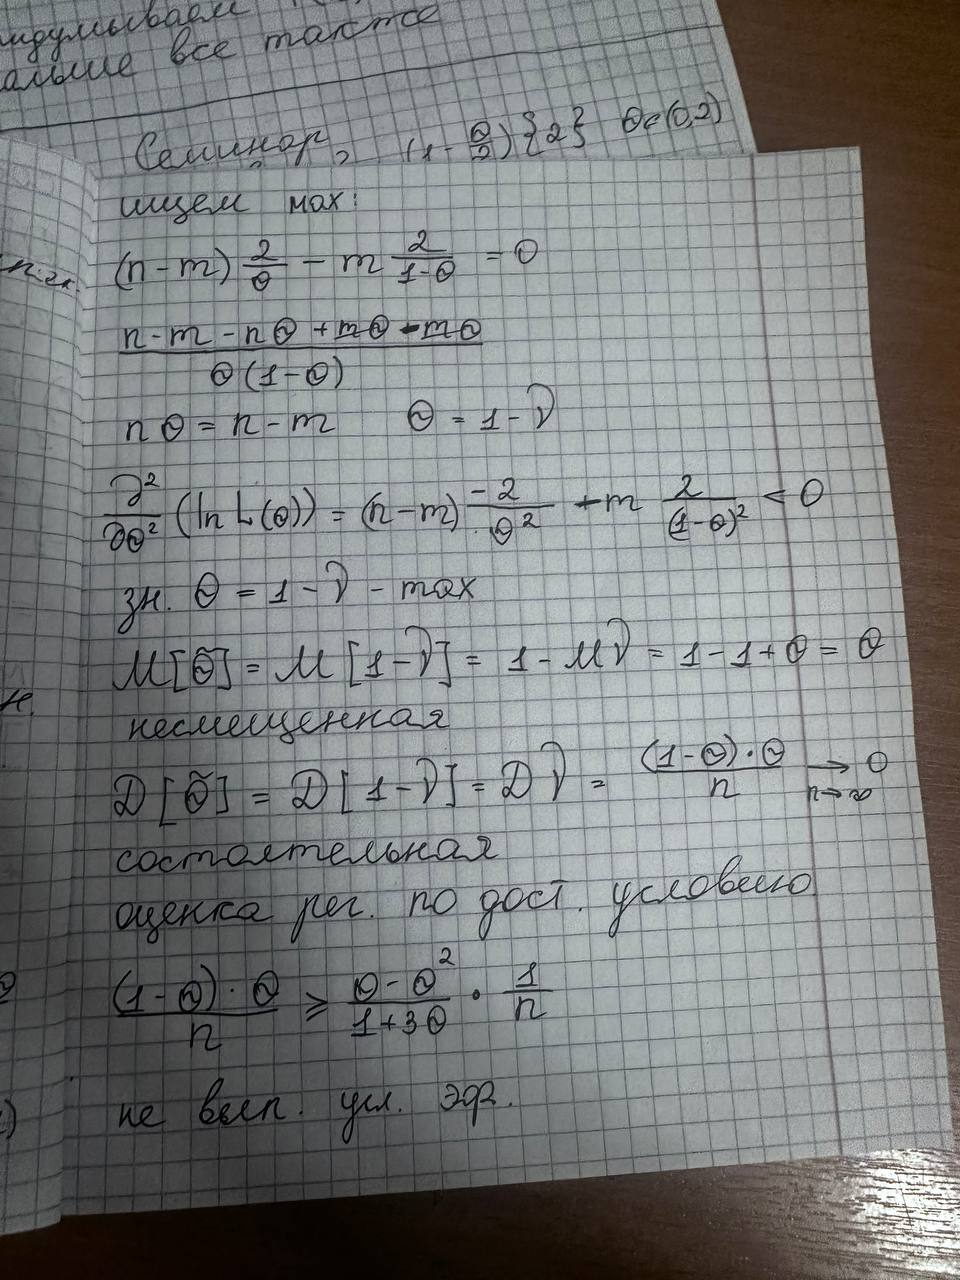 думываем
альше все также
Семинар, (1 - θ/2) {2} θ∈(0,2)
ищем max:
(n-m) 2/θ - m 2/(1-θ) = 0
(n-m-nθ+mθ-mθ)/(θ(1-θ))
nθ = n-m θ = 1-ν
∂²/∂θ² (ln L(θ)) = (n-m) -2/θ² + m 2/(1-θ)² < 0
зн. θ = 1-ν - max
M[θ̃] = M[1-ν] = 1-Mν = 1-1+θ = θ
несмещенная
D[θ̃] = D[1-ν] = Dν = (1-θ)·θ/n → 0 n→∞
состоятельная
оценка рег. по дост. условию
(1-θ)·θ/n ⩾ (θ-θ²)/(1+3θ) · 1/n
не вып. усл. эфф.